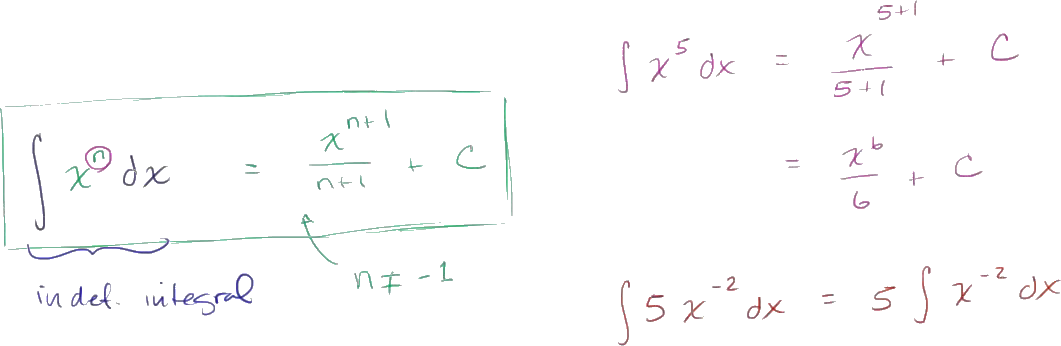 ∫ xⁿ dx = xⁿ⁺¹/(n+1) + C
n ≠ -1
indef. integral
∫ x⁵ dx = x⁵⁺¹/(5+1) + C
= x⁶/6 + C
∫ 5 x⁻² dx = 5 ∫ x⁻² dx